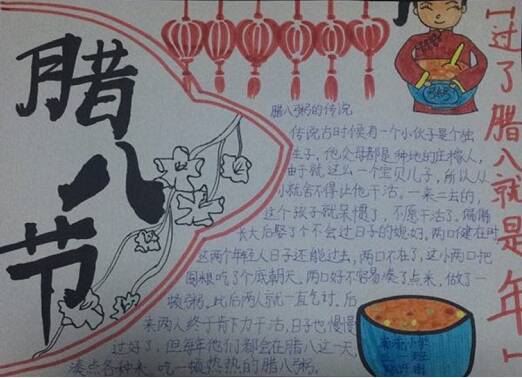 腊八节
【过了腊八就是年】
腊八粥的传说
传说古时候有一个小伙子是个独
生子,他父母都是种地的庄稼人,
由于就这么一个宝贝儿子,所以从
小就舍不得让他干活。一来二去的,
这个孩子就呆惯了,不愿干活了。偏偏
长大后娶了个不会过日子的媳妇。两口健在时
这两个年轻人日子还能过去,两口不在了,这小两口把
囤粮吃了个底朝天。两口好不容易凑了点米,做了一
顿粥。此后两人就一直乞讨,后
来两人终于肯下力干活,日子也慢慢
过好了,但每年他们都会在腊八这一天,
凑点各种米,吃一顿热热的腊八粥。
小学
班